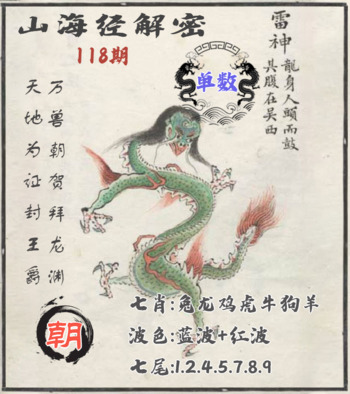 山海经解密
118期
单数
雷神龍身人頭而鼓
其腹在吴西
万兽朝贺拜龙渊
天地为证封王爵
朝
七肖:兔龙鸡虎牛狗羊
波色:蓝波+红波
七尾:1.2.4.5.7.8.9